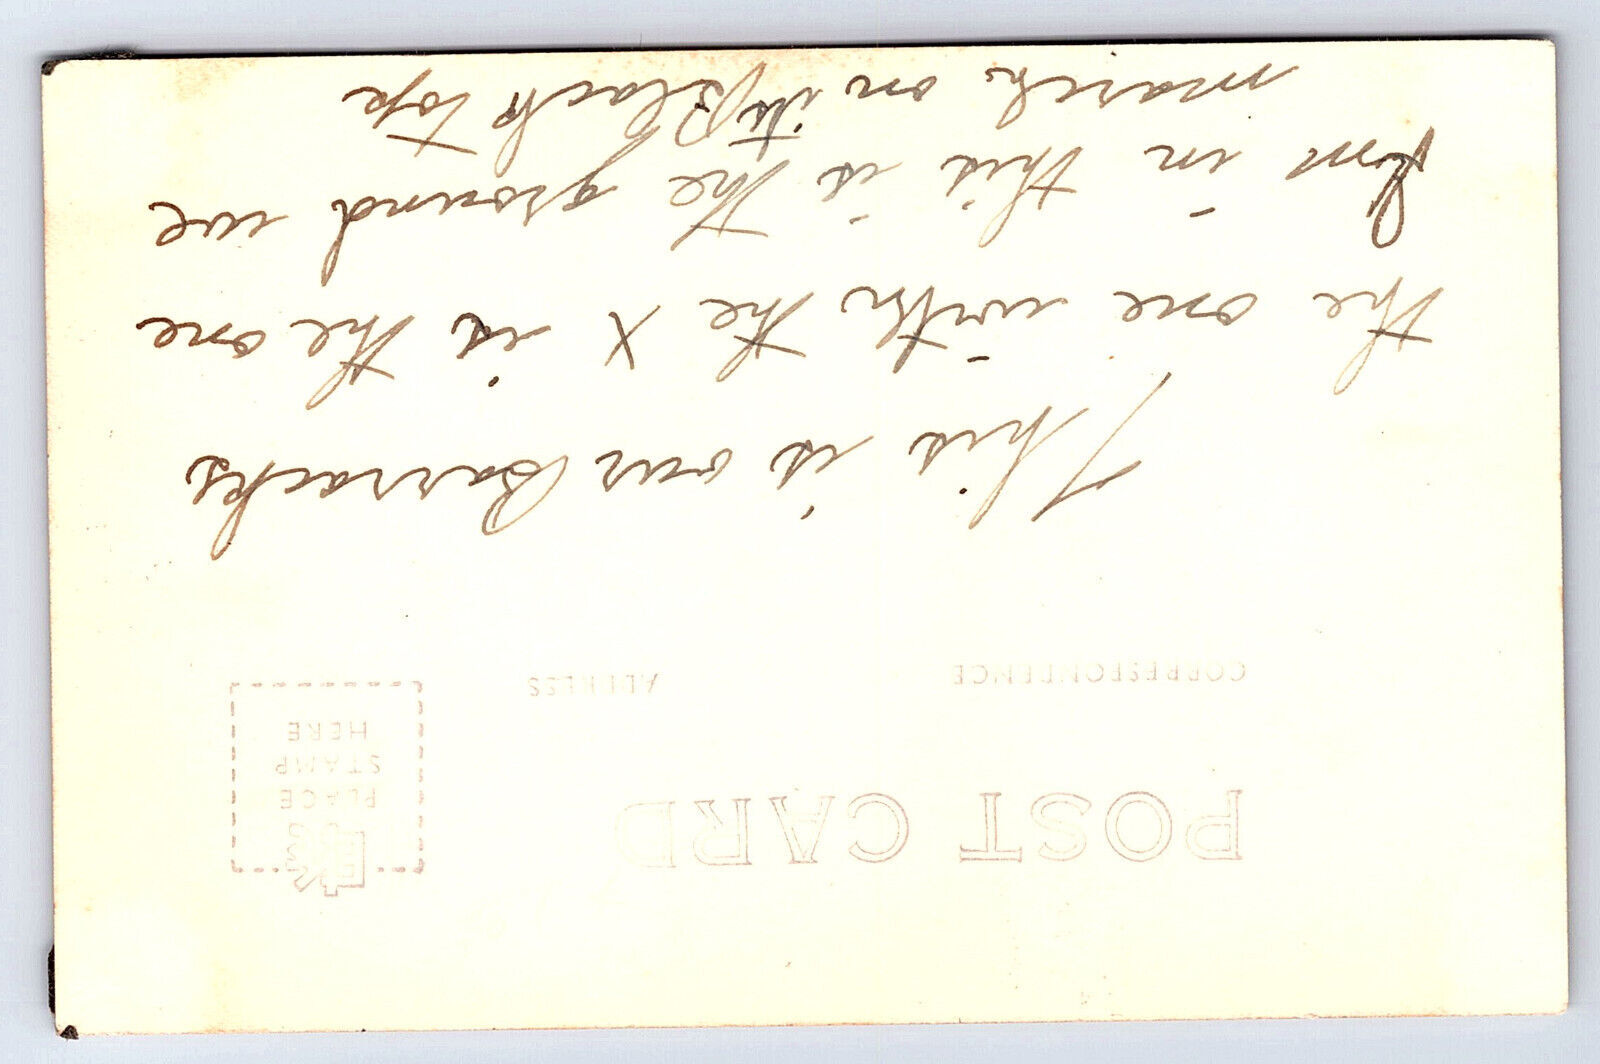 POST CARD
PLACE
STAMP
HERE
CORRESPONDENCE
ADDRESS
This is our Barracks
the one with the X is the one
Im in this is the ground we
march on its Black top